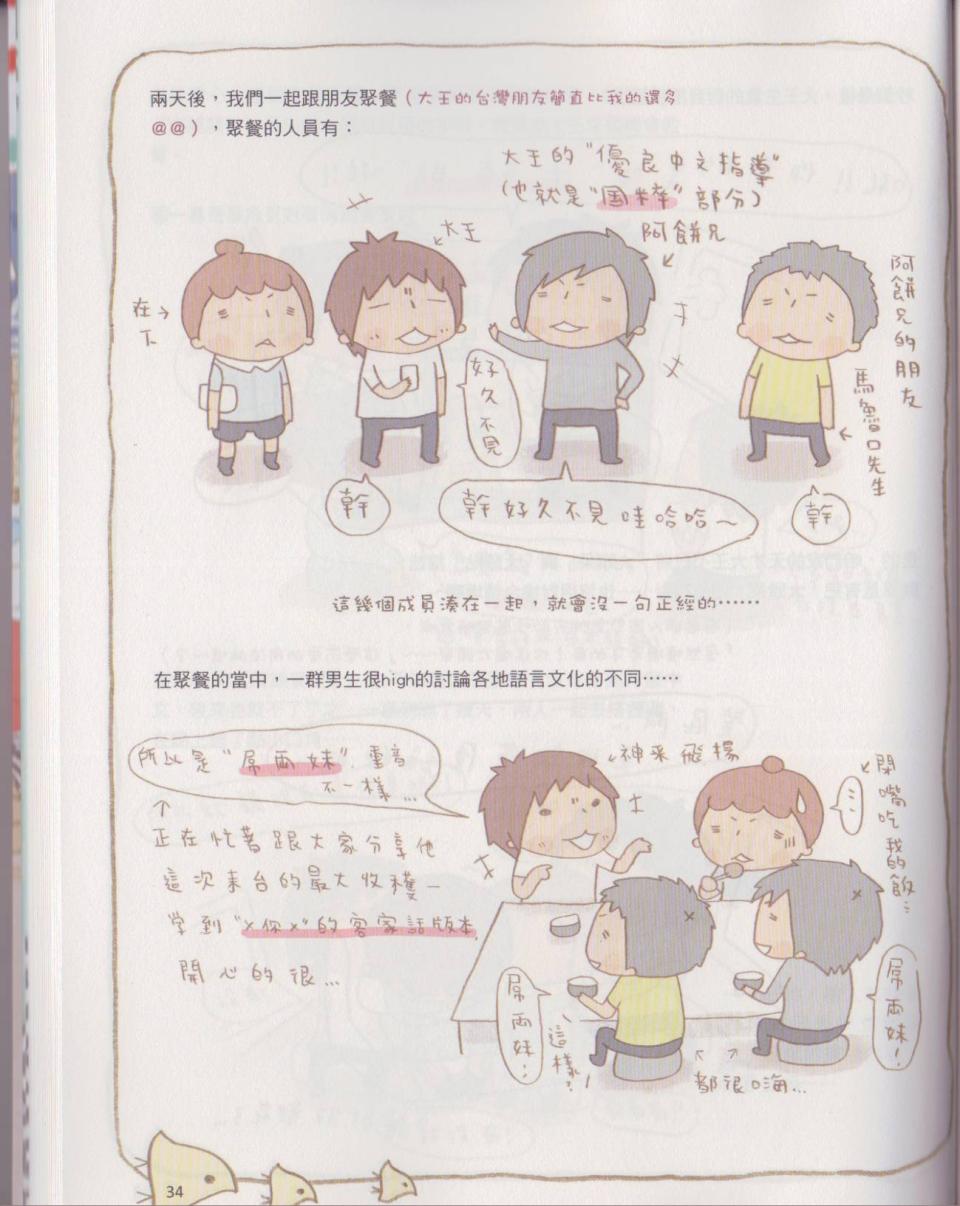 兩天後，我們一起跟朋友聚餐（大王的台灣朋友簡直比我的還多
@@），聚餐的人員有：
大王的"優良中文指導"
(也就是"国粹"部分)
阿餅兄
大王
在下
阿餅兄的朋友
馬魯口先生
好久不見
幹
幹好久不見哇哈哈～
幹
這幾個成員湊在一起，就會沒一句正經的……
在聚餐的當中，一群男生很high的討論各地語言文化的不同……
所以是"屌兩妹"，重音
不一樣…
正在忙著跟大家分享他
這次來台的最大收穫—
學到"x你x"的客家話版本，
開心的很…
神采飛揚
…
閉嘴吃我的飯…
屌兩妹！
這樣？
屌兩妹！
都很嗨…
34